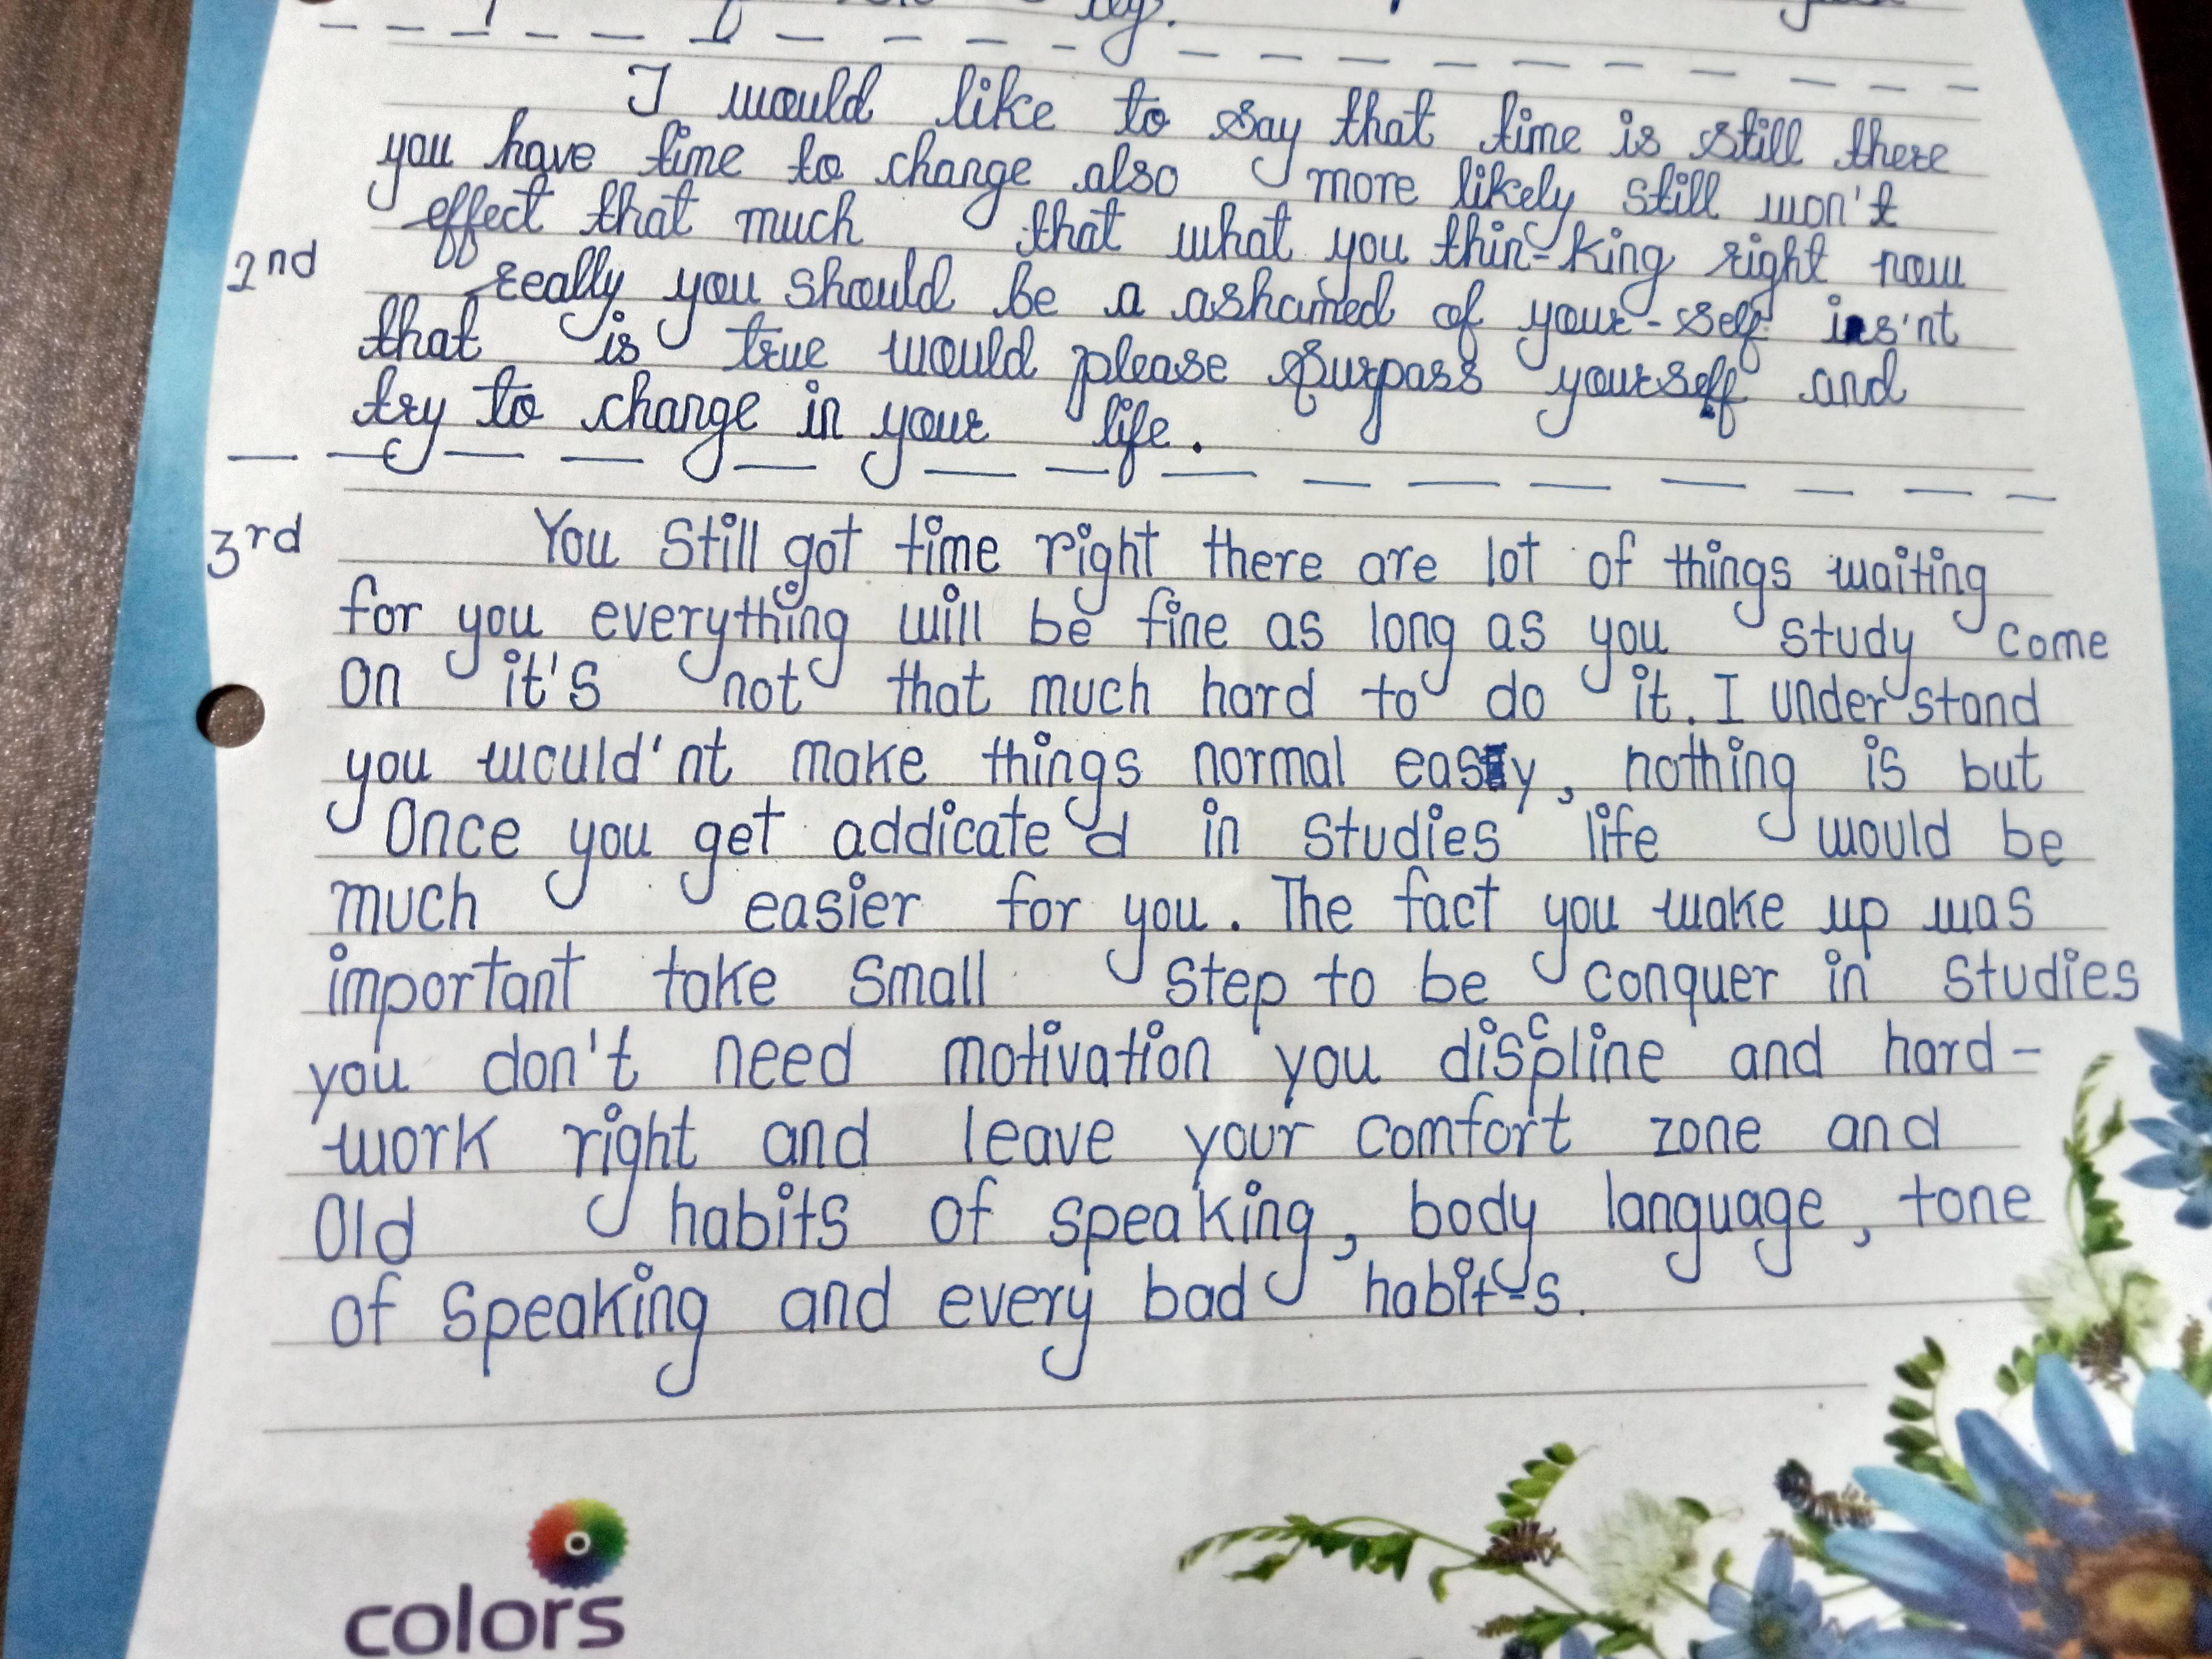 I would like to say that time is still there
you have time to change also more likely still won't
effect that much that what you thin-king right now
2nd
really you should be a ashamed of your-self ins'nt
that is true would please surpass yourself and
try to change in your life.
3rd
You still got time right there are lot of things waiting
for you everything will be fine as long as you study come
on it's not that much hard to do it. I understand
you would'nt make things normal easy, nothing is but
Once you get addicate d in studies life would be
much easier for you. The fact you wake up was
important take small step to be conquer in studies
you don't need motivation you discpline and hard-
work right and leave your comfort zone and
Old habits of speaking, body language, tone
of speaking and every bad habit-s.
colors